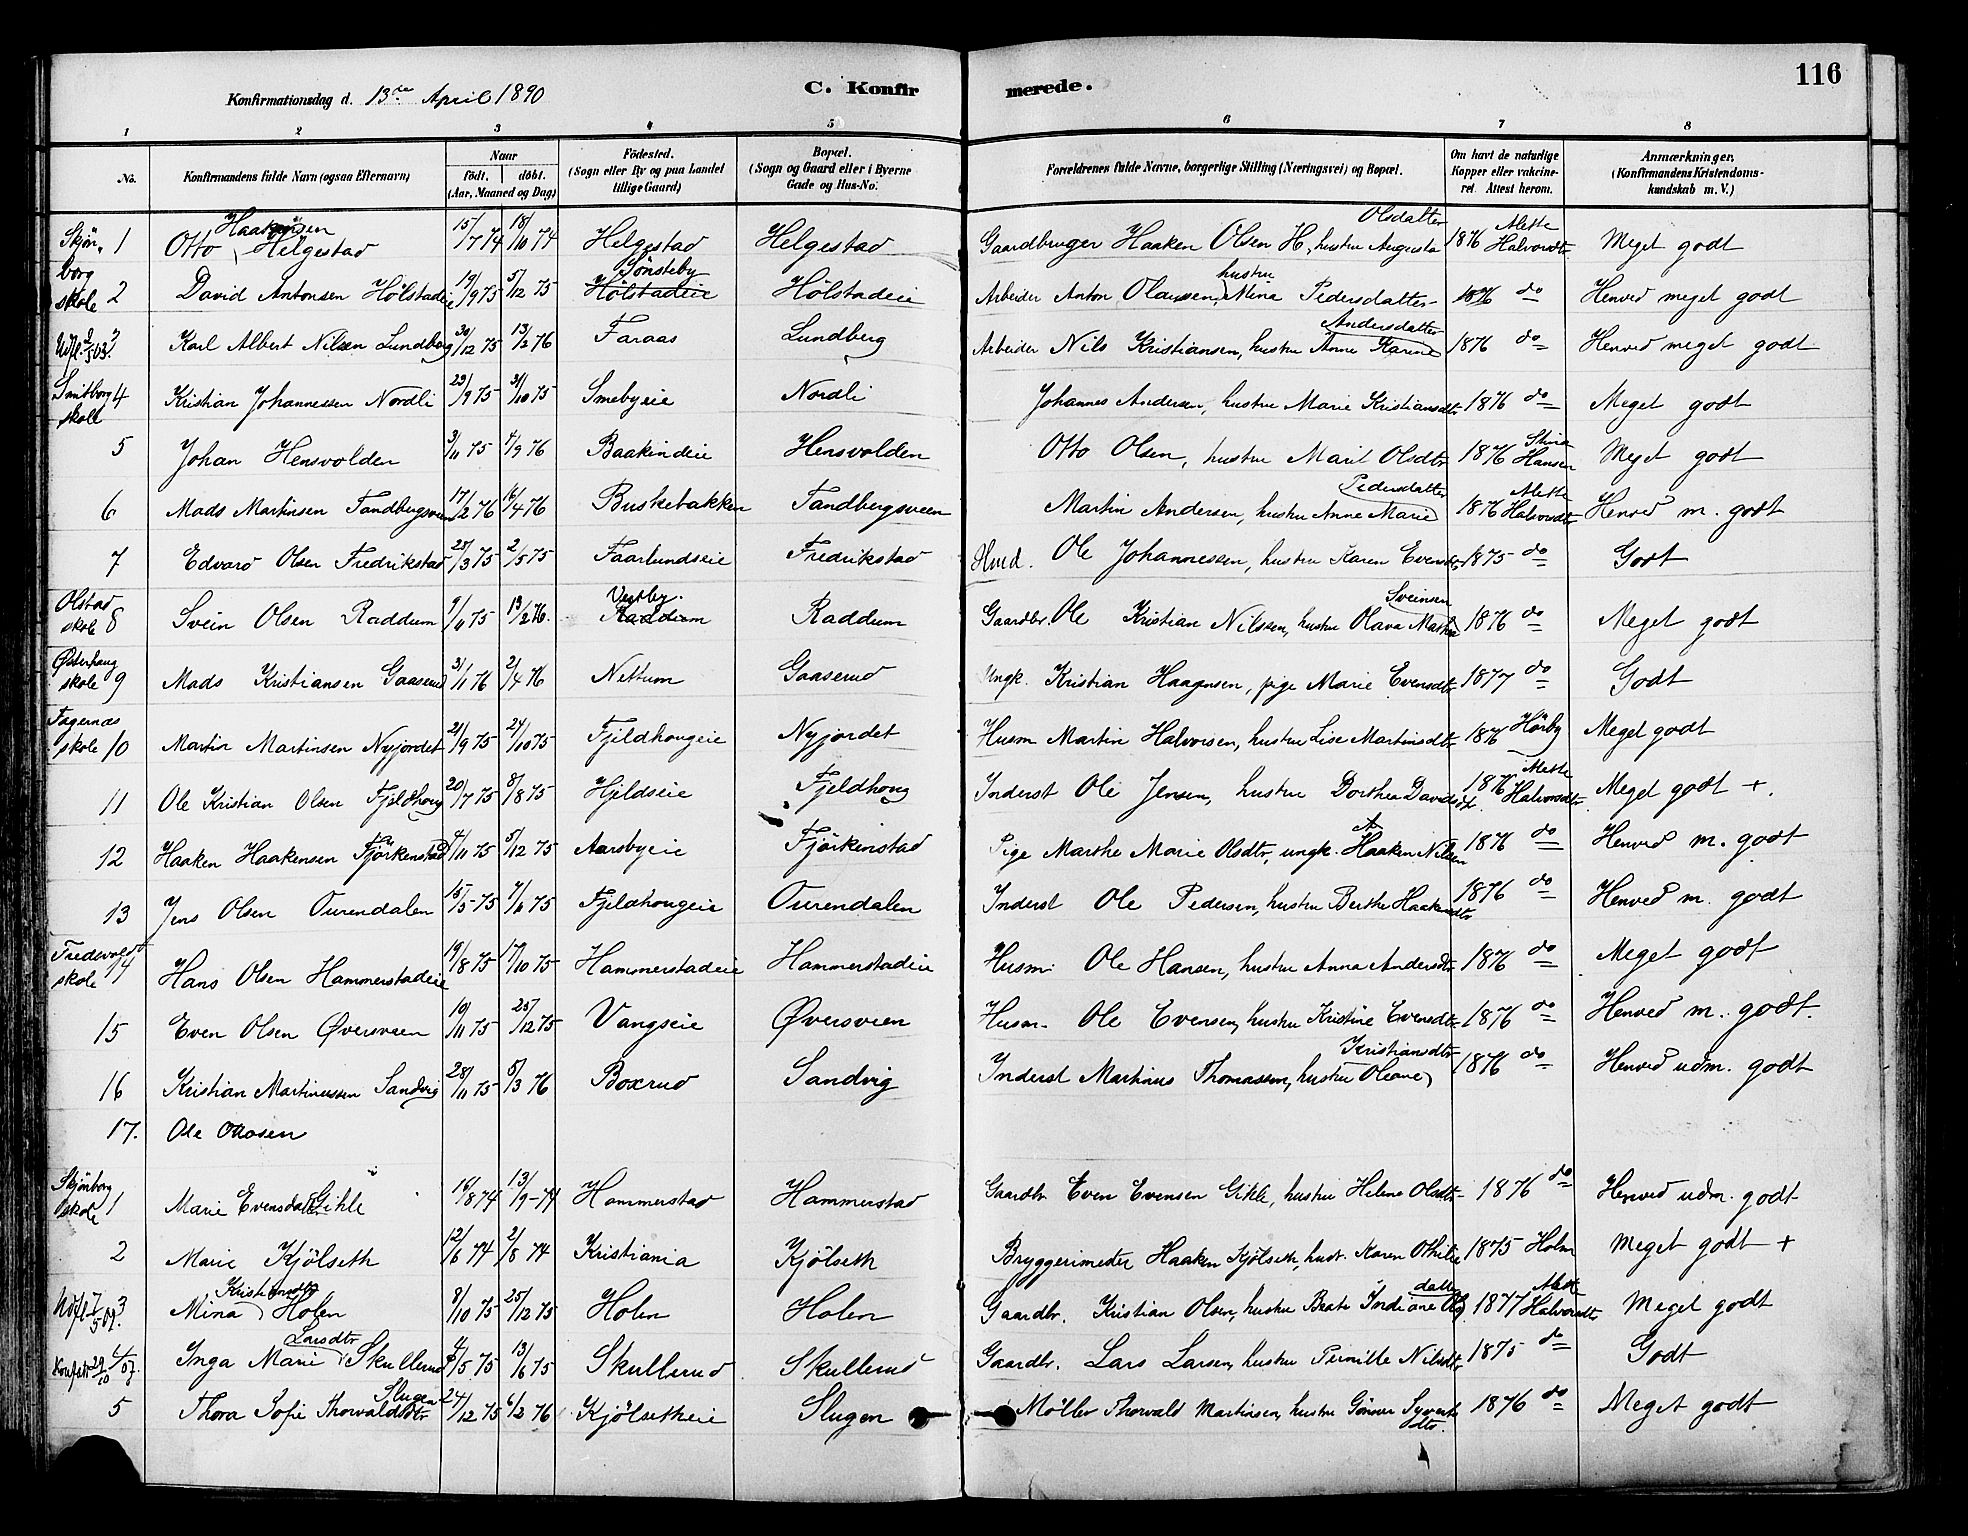 116
Konfirmationsdag d. 13de April 1890 C. Konfirmerede.
1 2 3 4 5 6 7 8
No. Konfirmandens fulde Navn (ogsaa Efternavn) Naar födt. döbt. (Aar, Maaned og Dag) Födested. (Sogn eller By og paa Landet tillige Gaard) Bopæl. (Sogn og Gaard eller i Byerne Gade og Hus-No. Forældrenes fulde Navne, borgerlige Stilling (Næringsvei) og Bopæl. Om havt de naturlige Kopper eller vakcineret. Attest herom. Anmærkninger. (Konfirmandens Kristendomskundskab m. V.)
Skjönborg skole 1 Otto Haakensen Helgestad 15/7 74 18/10 74 Helgestad Helgestad Gaardbruger Haaken Olsen H., hustru Augusta Olsdatter 1876 Alette Halvorsdtr Meget godt
2 David Antonsen Hölstadeie 19/9 75 5/12 75 Sönsteby Hölstadeie Hölstadeie Arbeider Anton Olaussen, hustru Mina Pedersdatter 1876 do Henved meget godt
3 Karl Albert Nilsen Lundberg 30/12 75 13/2 76 Faraas Lundberg Arbeider Nils Kristiansen, hustru Anne Karine Andersdatter 1876 do Henved meget godt
Smitborg skole 4 Kristian Johannessen Nordli 23/9 75 31/10 75 Smebyeie Nordli Johannes Andersen, hustru Marie Kristiansdtr 1876 do Meget godt
5 Johan Hensvolden 3/11 75 4/9 76 Baakindeie Hensvolden Otto Olsen, hustru Marit Olsdtr 1876 Stina Hansen Meget godt
6 Mads Martinsen Tandbergsveen 17/2 76 16/4 76 Buskebakken Tandbergsveen Martin Andersen, hustru Anne Marie Pedersdatter 1876 Alette Halvorsdtr Henved m. godt
7 Edvard Olsen Fredrikstad 25/3 75 2/5 75 Faarlundseie Fredrikstad Husd. Ole Johannessen, hustru Karen Evensdtr 1875 do Godt
Olstad skole 8 Svein Olsen Raddum 9/11 75 13/2 76. Vestby. Raddum Raddum Gaardbr. Ole Kristian Nilssen, hustru Olava Mathea Sveinsen 1876 do Meget godt
Østerhaug skole 9 Mads Kristiansen Gaaserud 3/1 76 2/4 76 Nettum Gaaserud Ungk. Kristian Haagensen, pige Marie Evensdtr 1877 do Godt
Fagernæs skole 10 Martin Martinsen Nyjordet 21/9 75 24/10 75 Fjeldhougeie Nyjordet Husm Martin Halvorsen, hustru Lise Martinsdtr 1876 Hörby Meget godt
11 Ole Kristian Olsen Fjeldhoug 20/7 75 8/8 75 Hjeldseie Fjeldhoug Inderst Ole Jensen, hustru Dorthea Davidsdtr. 1876 Alette Halvorsdtr Meget godt +.
12 Haaken Haakensen Fjörkenstad 4/11 75 5/12 75 Aarsbyeie Fjörkinstad Pige Marthe Marie Olsdtr, ungk. Haaken Nilsen 1876 do Henved m. godt
13 Jens Olsen Ourendalen 15/5 75 7/6 75 Fjeldhougeie Ourendalen Inderst Ole Pedersen, hustru Berthe Haakensdtr 1876 do Henved m. godt
skole 14 Hans Olsen Hammerstadeie 19/8 75 17/10 75 Hammerstadeie Hammerstadeie Husm. Ole Hansen, hustru Anna Andersdtr 1876 do Meget godt
15 Even Olsen Øversveen 10/11 75 25/12 75 Vangseie Øversveen Husm. Ole Evensen, hustru Kristine Evensdtr 1876 do Henved m. godt.
16 Kristian Martinussen Sandvig 28/11 75 5/3 76 Boxrud Sandvig Inderst Martinus Thomassen, hustru Oleane Kristiansdtr 1876 do Henved udm. godt
17. Ole Ottosen
Skjönborg skole 1 Marie Evensdatter Gihle 16/8 74 13/9 74 Hammerstad Hammerstad Gaardbr Even Evensen Gihle, hustru Helene Olsdtr 1876 do Henved udm. godt
2 Marie Kjölseth 12/6 74 2/8 74 Kristiania Kjölseth Bryggerimester Haaken Kjölseth, hust. Karen Othilie 1875 Holm Meget godt +
3 Mina Kristiansdtr Holen 8/10 75 25/12 75 Holen Holen Gaardbr. Kristian Olsen, hustru Beate Indiane Olsdatter 1877 Alette Halvorsdtr Meget godt
Inga Marie Larsdtr Skullerud 4/5 75 13/6 75 Skullerud Skullerud Gaardbr. Lars Larsen, hustru Pernille Nilsdtr 1875 do Godt
5 Thora Sofie Thorvaldsdtr Slugen 24/12 75 6/2 76 Kjölsetheie Slugen Möller Thorvald Martinsen, hustru Gunver Syvertsdtr. 1876 do Meget godt